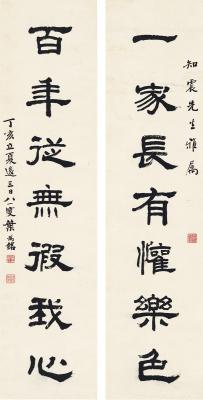 知震先生雅属
一家長有懽樂色
百年從無假我心
丁亥立夏後三日八一叟葉為銘